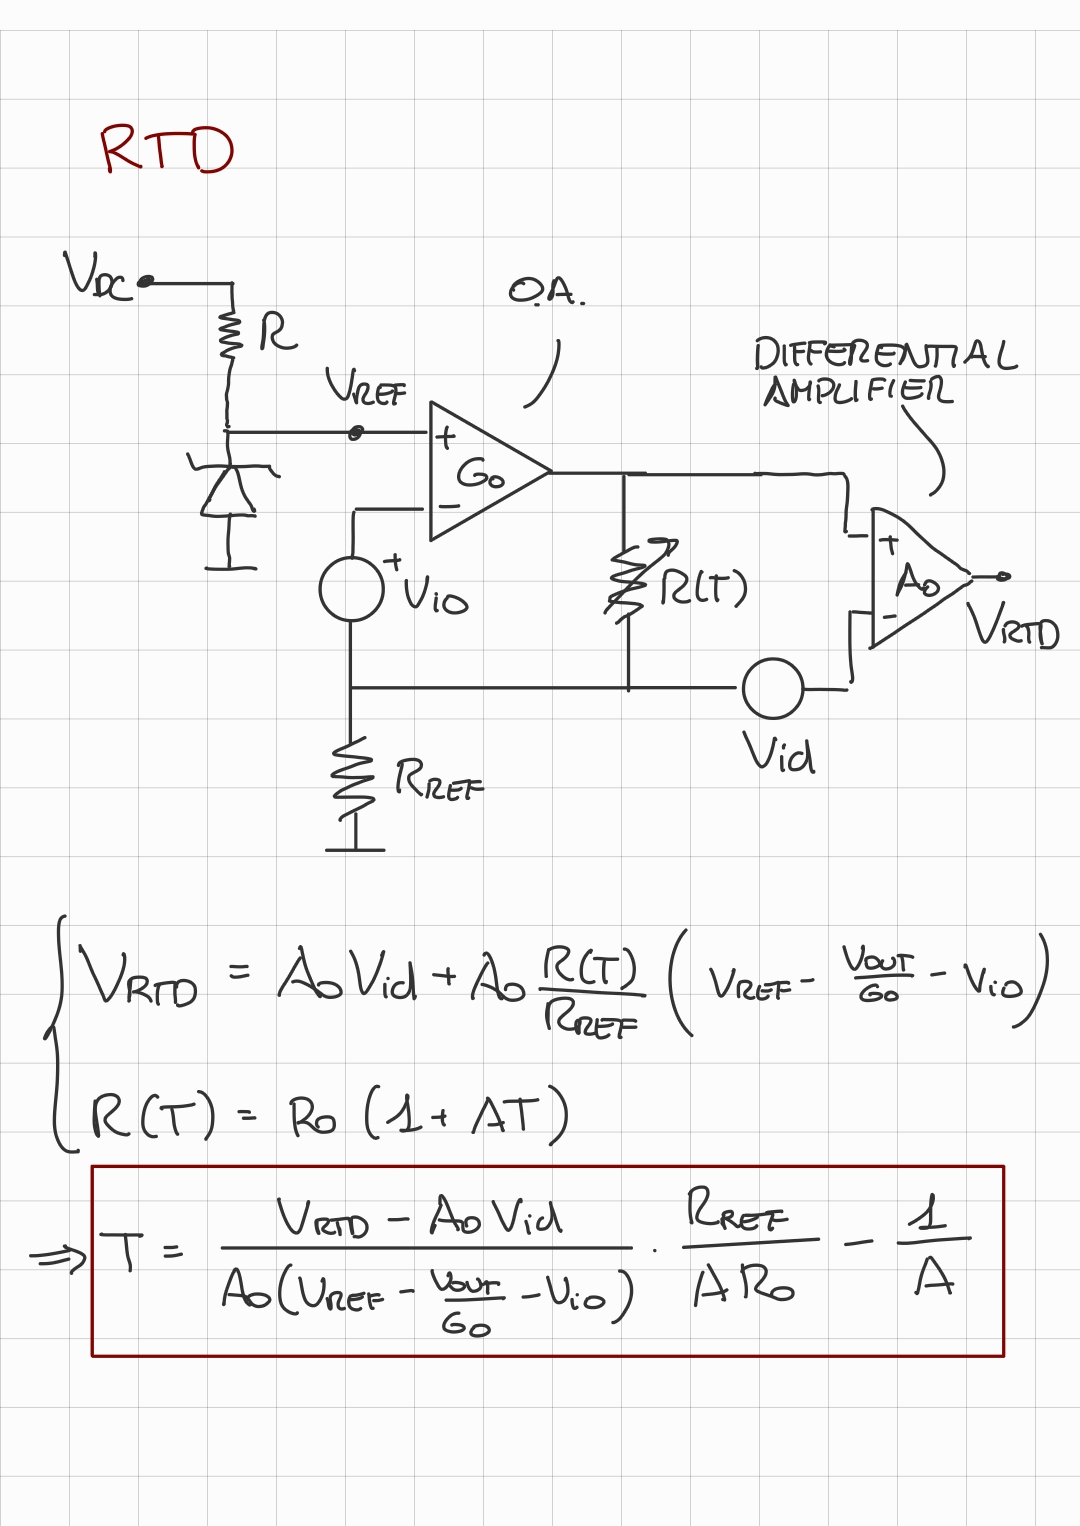 RTD
V_DC
R
O.A.
V_REF
DIFFERENTIAL
AMPLIFIER
+
G₀
−
+
V_io
R(T)
+
A₀
−
V_RTD
Vid
R_REF
V_RTD = A₀ Vid + A₀ R(T)/R_REF (V_REF − V_OUT/G₀ − V_io)
R(T) = R₀ (1 + AT)
⇒ T = (V_RTD − A₀ Vid)/(A₀(V_REF − V_OUT/G₀ − V_io)) · R_REF/(A R₀) − 1/A